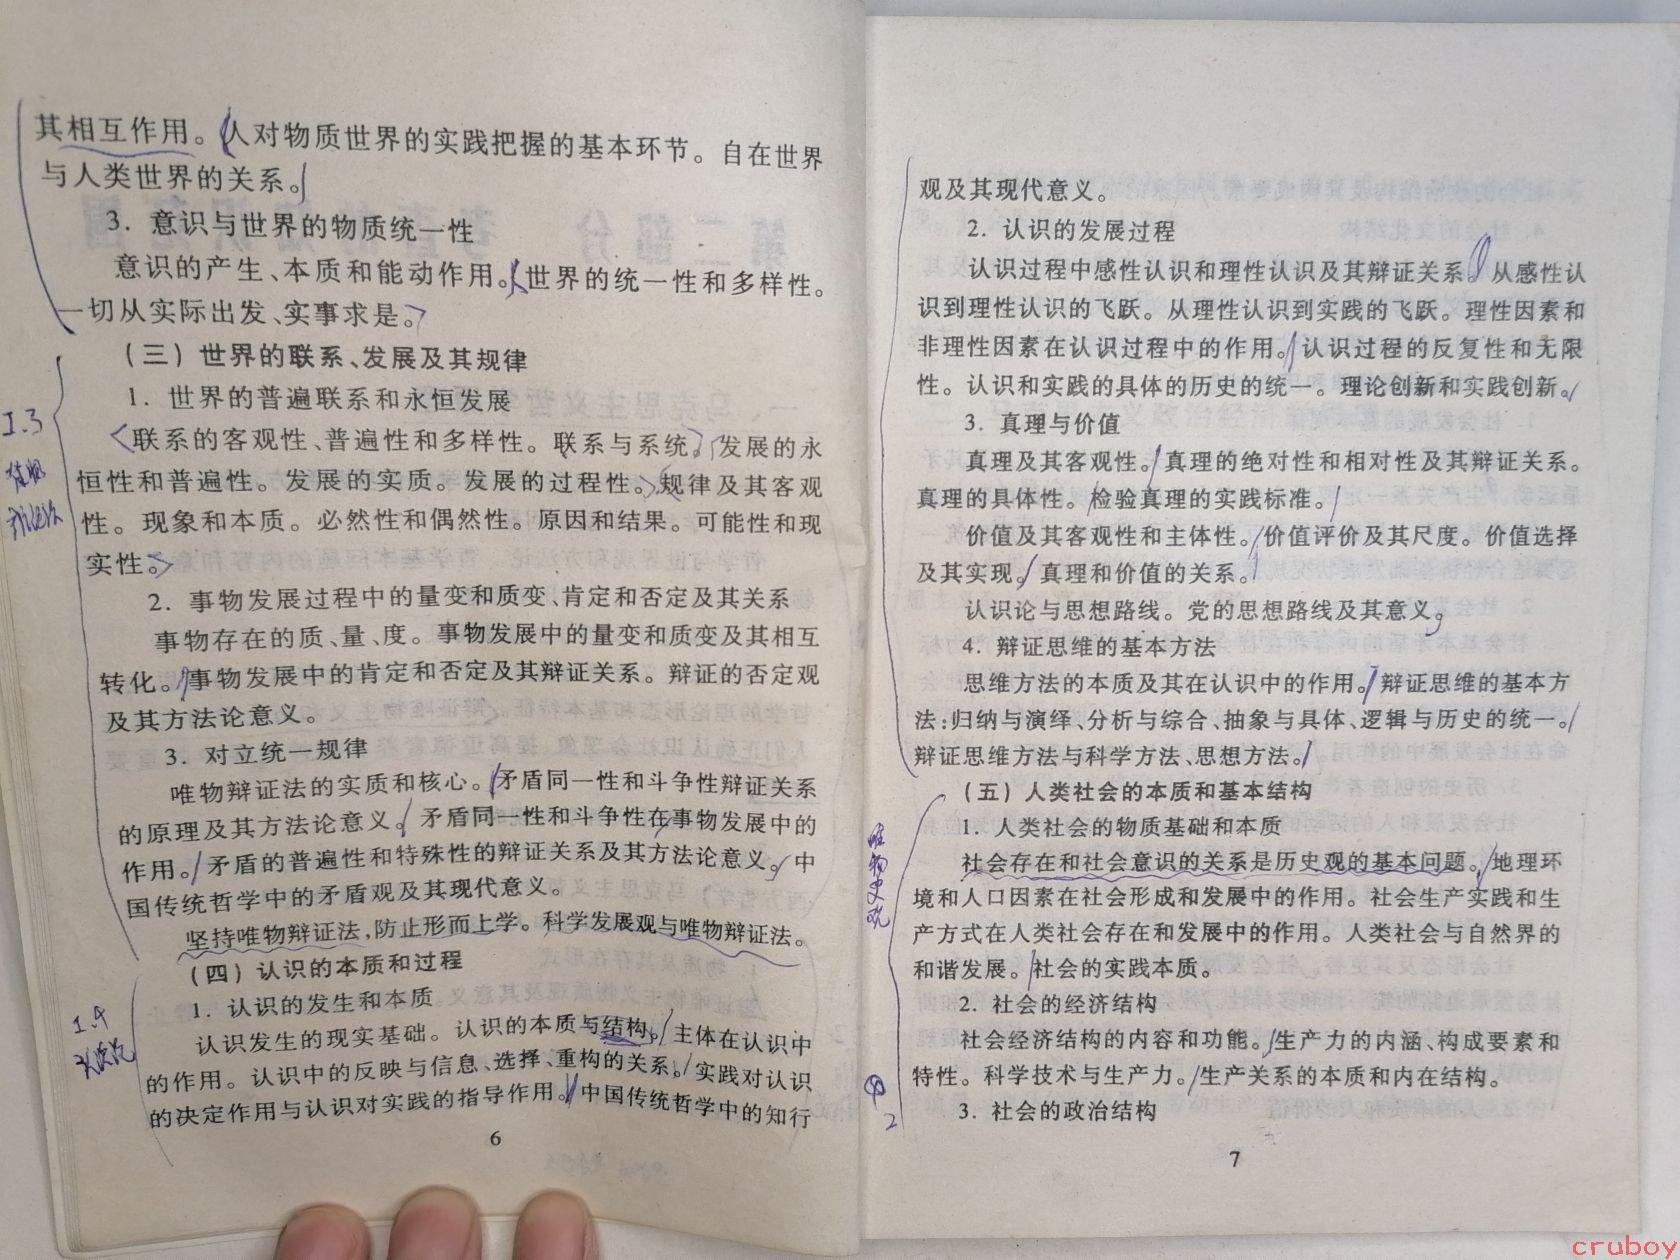 其相互作用。人对物质世界的实践把握的基本环节。自在世界
与人类世界的关系。
3. 意识与世界的物质统一性
意识的产生、本质和能动作用。世界的统一性和多样性。
一切从实际出发、实事求是。
(三)世界的联系、发展及其规律
1. 世界的普遍联系和永恒发展
联系的客观性、普遍性和多样性。联系与系统。发展的永
恒性和普遍性。发展的实质。发展的过程性。规律及其客观
性。现象和本质。必然性和偶然性。原因和结果。可能性和现
实性。
2. 事物发展过程中的量变和质变、肯定和否定及其关系
事物存在的质、量、度。事物发展中的量变和质变及其相互
转化。事物发展中的肯定和否定及其辩证关系。辩证的否定观
及其方法论意义。
3. 对立统一规律
唯物辩证法的实质和核心。矛盾同一性和斗争性辩证关系
的原理及其方法论意义。矛盾同一性和斗争性在事物发展中的
作用。矛盾的普遍性和特殊性的辩证关系及其方法论意义。中
国传统哲学中的矛盾观及其现代意义。
坚持唯物辩证法,防止形而上学。科学发展观与唯物辩证法。
(四)认识的本质和过程
1. 认识的发生和本质
认识发生的现实基础。认识的本质与结构。主体在认识中
的作用。认识中的反映与信息、选择、重构的关系。实践对认识
的决定作用与认识对实践的指导作用。中国传统哲学中的知行
6
I.3
I.4
认识论
观及其现代意义。
2. 认识的发展过程
认识过程中感性认识和理性认识及其辩证关系。从感性认
识到理性认识的飞跃。从理性认识到实践的飞跃。理性因素和
非理性因素在认识过程中的作用。认识过程的反复性和无限
性。认识和实践的具体的历史的统一。理论创新和实践创新。
3. 真理与价值
真理及其客观性。真理的绝对性和相对性及其辩证关系。
真理的具体性。检验真理的实践标准。
价值及其客观性和主体性。价值评价及其尺度。价值选择
及其实现。真理和价值的关系。
认识论与思想路线。党的思想路线及其意义。
4. 辩证思维的基本方法
思维方法的本质及其在认识中的作用。辩证思维的基本方
法:归纳与演绎、分析与综合、抽象与具体、逻辑与历史的统一。
辩证思维方法与科学方法、思想方法。
(五)人类社会的本质和基本结构
1. 人类社会的物质基础和本质
社会存在和社会意识的关系是历史观的基本问题。地理环
境和人口因素在社会形成和发展中的作用。社会生产实践和生
产方式在人类社会存在和发展中的作用。人类社会与自然界的
和谐发展。社会的实践本质。
2. 社会的经济结构
社会经济结构的内容和功能。生产力的内涵、构成要素和
特性。科学技术与生产力。生产关系的本质和内在结构。
3. 社会的政治结构
7
唯物史观
cruboy